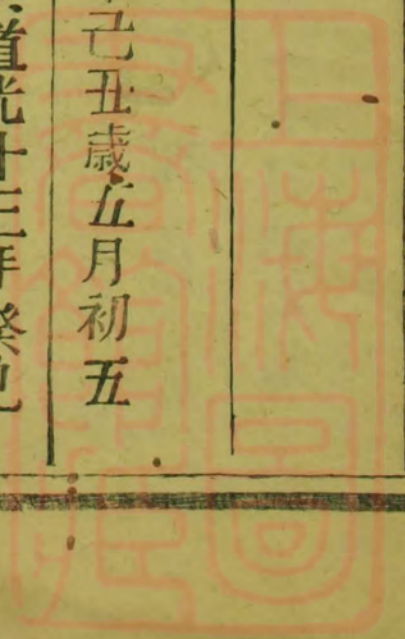 己丑歲五月初五
道光十三年癸巳
上海圖書館藏